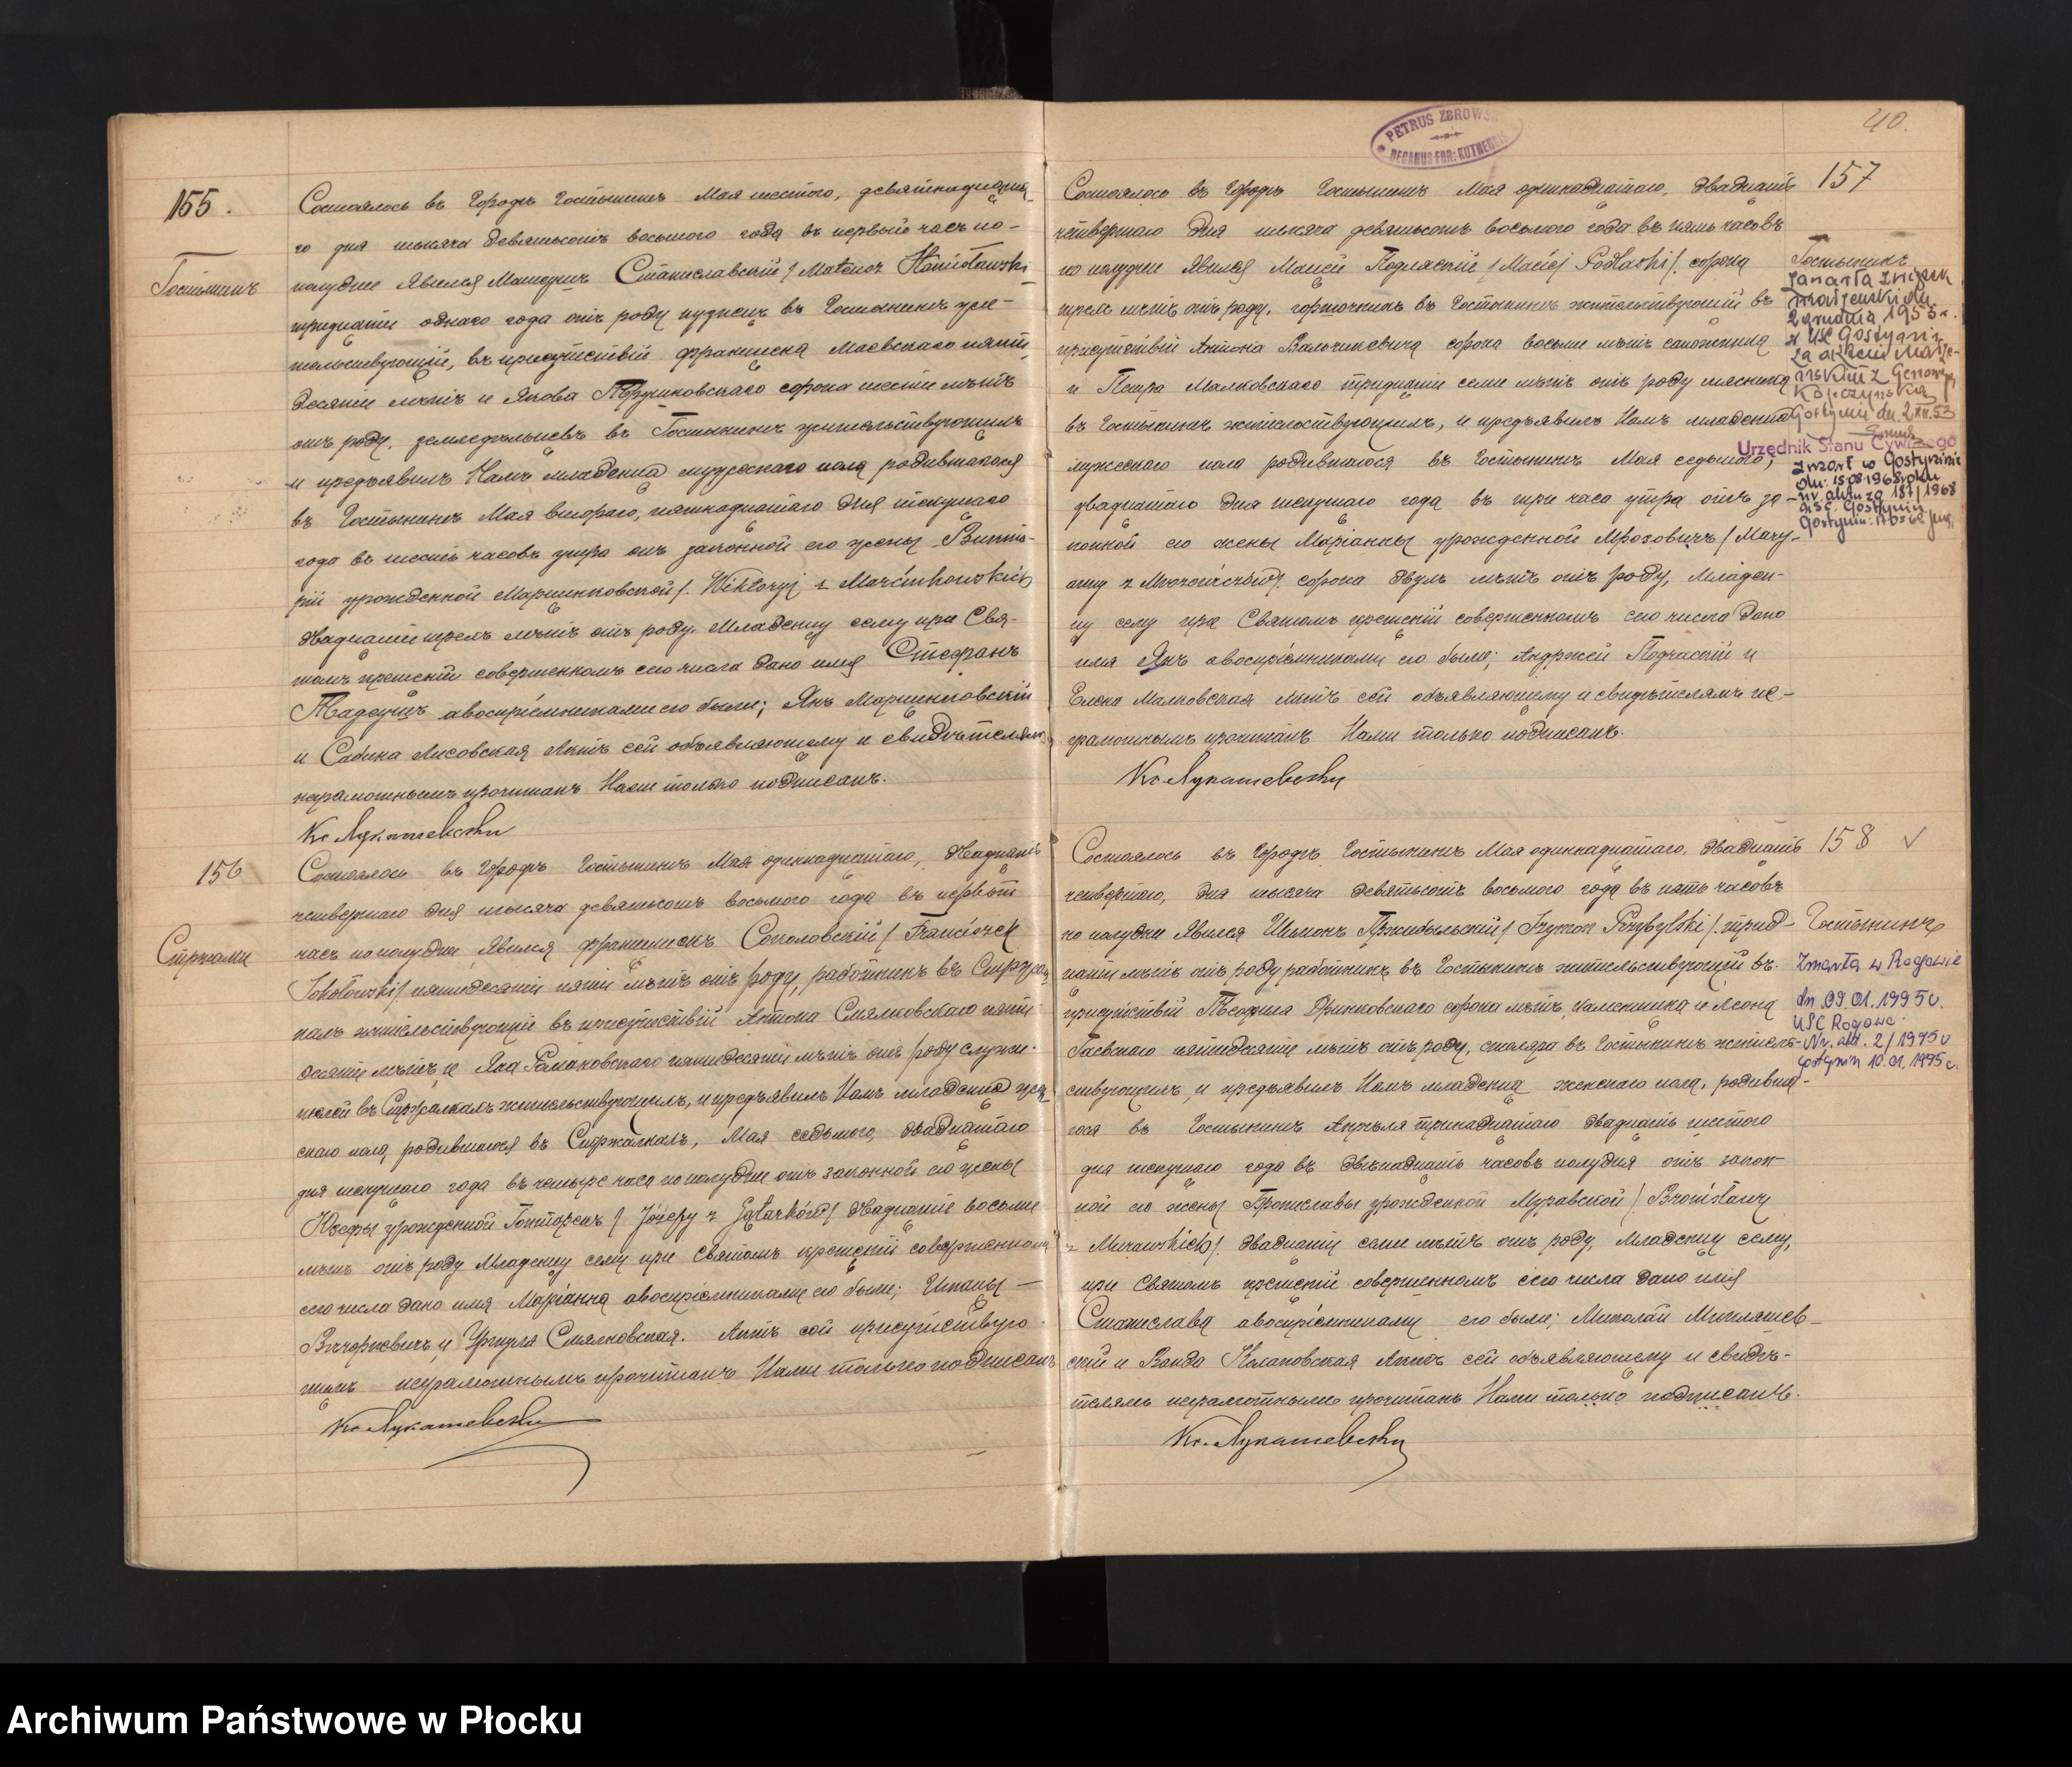 155.
Гостынинъ
Состоялось въ Городѣ Гостынинѣ Мая шестого, девятнадцата-
го дня тысяча девятьсотъ восьмого года въ первый часъ по-
полудни явился Матеушъ Станиславскій / Mateusz Stanisławski
тридцати одного года отъ роду кузнецъ въ Гостынинѣ жи-
тельствующій, въ присутствіи Франциска Маевскаго пяти-
десяти лѣтъ и Якова сорока шести лѣтъ
отъ роду, земледѣльцевъ въ Гостынинѣ жительствующихъ
и предъявилъ Намъ младенца мужескаго пола родившагося
въ Гостынинѣ Мая второго, пятнадцатаго дня текущаго
года въ шесть часовъ утра отъ законной его жены Викто-
ріи урожденной Марцинковской /. Wiktoryi z Marcinkowskich
двадцати трехъ лѣтъ отъ роду. Младенцу сему при Свя-
томъ крещеніи совершенномъ сего числа дано имя Стефанъ
Тадеушъ а воспріемниками его были; Янъ Марцинковскій
и Сабина Лисовская Актъ сей объявляющему и свидѣтелямъ
неграмотнымъ прочитанъ Нами только подписанъ.
Кс Лукашевски
156
Стржалки
Состоялось въ Городѣ Гостынинѣ Мая одиннадцатаго, двадцать
четвертаго дня тысяча девятьсотъ восьмого года въ первый
часъ пополудни, явился Францишекъ Соколовскій / Franciszek
Sokołowski / пятидесяти пяти лѣтъ отъ роду, работникъ въ Стржал-
кахъ жительствующій въ присутствіи Антона Смялковскаго пяти-
десяти лѣтъ и Яна пятидесяти лѣтъ отъ роду служи-
телей въ Стржалкахъ жительствующихъ, и предъявилъ Намъ младенца жен-
скаго пола, родившагося въ Стржалкахъ, Мая седьмого, двадцатаго
дня текущаго года въ четыре часа пополудни отъ законной его жены
Юзефы урожденной / Józefy z / двадцати восьми
лѣтъ отъ роду Младенцу сему при Святомъ крещеніи совершенномъ
сего числа дано имя Маріанна а воспріемниками его были; Игнацы —
и Уршуля Смялковская. Актъ сей присутствую-
щимъ неграмотнымъ прочитанъ Нами только подписанъ
Кс Лукашевски
PETRUS ZBROWSKI
DECANUS FOR: KUTNENSIS
40.
157
Гостынинъ
Состоялось въ Городѣ Гостынинѣ Мая одинадцатаго, двадцать
четвертаго дня тысяча девятьсотъ восьмого года въ пять часовъ
по полудни явился Мацей Подляскій / Maciej Podlaski /. сорока
трехъ лѣтъ отъ роду, горшечникъ въ Гостынинѣ жительствующій въ
присутствіи Антона Вальчикевича сорока восьми лѣтъ сапожника
и Петра Малковскаго тридцати семи лѣтъ отъ роду мясника
въ Гостынинѣ жительствующихъ, и предъявилъ Намъ младенца
мужескаго пола родившагося въ Гостынинѣ Мая седьмого,
двадцатаго дня текущаго года въ три часа утра отъ за-
конной его жены Маріанны урожденной Мрозовичъ / Mary-
anny z Mrozowiczów /. сорока двухъ лѣтъ отъ роду, Младен-
цу сему при Святомъ крещеніи совершенномъ сего числа дано
имя Янъ а воспріемниками его были; Андржей Подляскій и
Елена Малковская Актъ сей объявляющему и свидѣтелямъ не-
грамотнымъ прочитанъ Нами только подписанъ.
Кс Лукашевски
Zawarła związek
małżeński dn.
2 grudnia 1953 r.
w USC Gostynin
za aktem małże-
ńskim z Genowefą
Kopczyńską
Gostynin dn. 2.XII.53
Urzędnik Stanu Cywilnego
Zmarł w Gostyninie
dn. 15.08.1968 roku
nr. aktu zg 187/1968
USC. Gostynin
158 ✓
Гостынинъ
Состоялось въ Городѣ Гостынинѣ Мая одиннадцатаго, двадцать
четвертаго, дня тысяча девятьсотъ восьмого года въ пять часовъ
по полудни явился Шимонъ Пржибыльскій / Szymon Przybylski /. трид-
цати лѣтъ отъ роду работникъ въ Гостынинѣ жительствующій въ
присутствіи Теофила сорока лѣтъ, каменщика и Леона
Гаевскаго пятидесяти лѣтъ отъ роду, столяра въ Гостынинѣ житель-
ствующихъ, и предъявилъ Намъ младенца женскаго пола, родивша-
гося въ Гостынинѣ Апрѣля тринадцатаго двадцать шестого
дня текущаго года въ двѣнадцать часовъ полудня отъ закон-
ной его жены Брониславы урожденной Муравской / Bronisławy
z Murawskich /. двадцати семи лѣтъ отъ роду, Младенцу сему,
при Святомъ крещеніи совершенномъ сего числа дано имя
Станислава а воспріемниками его были; Миколай Микляшев-
скій и Ванда Колаковская Актъ сей объявляющему и свидѣ-
телямъ неграмотнымъ прочитанъ Нами только подписанъ.
Кс. Лукашевски
Zmarła w Rogowie
dn. 09.01.1995 r.
USC Rogowo
Nr. akt. 2/1995 r
Gostynin 10.01.1995 r.
Archiwum Państwowe w Płocku